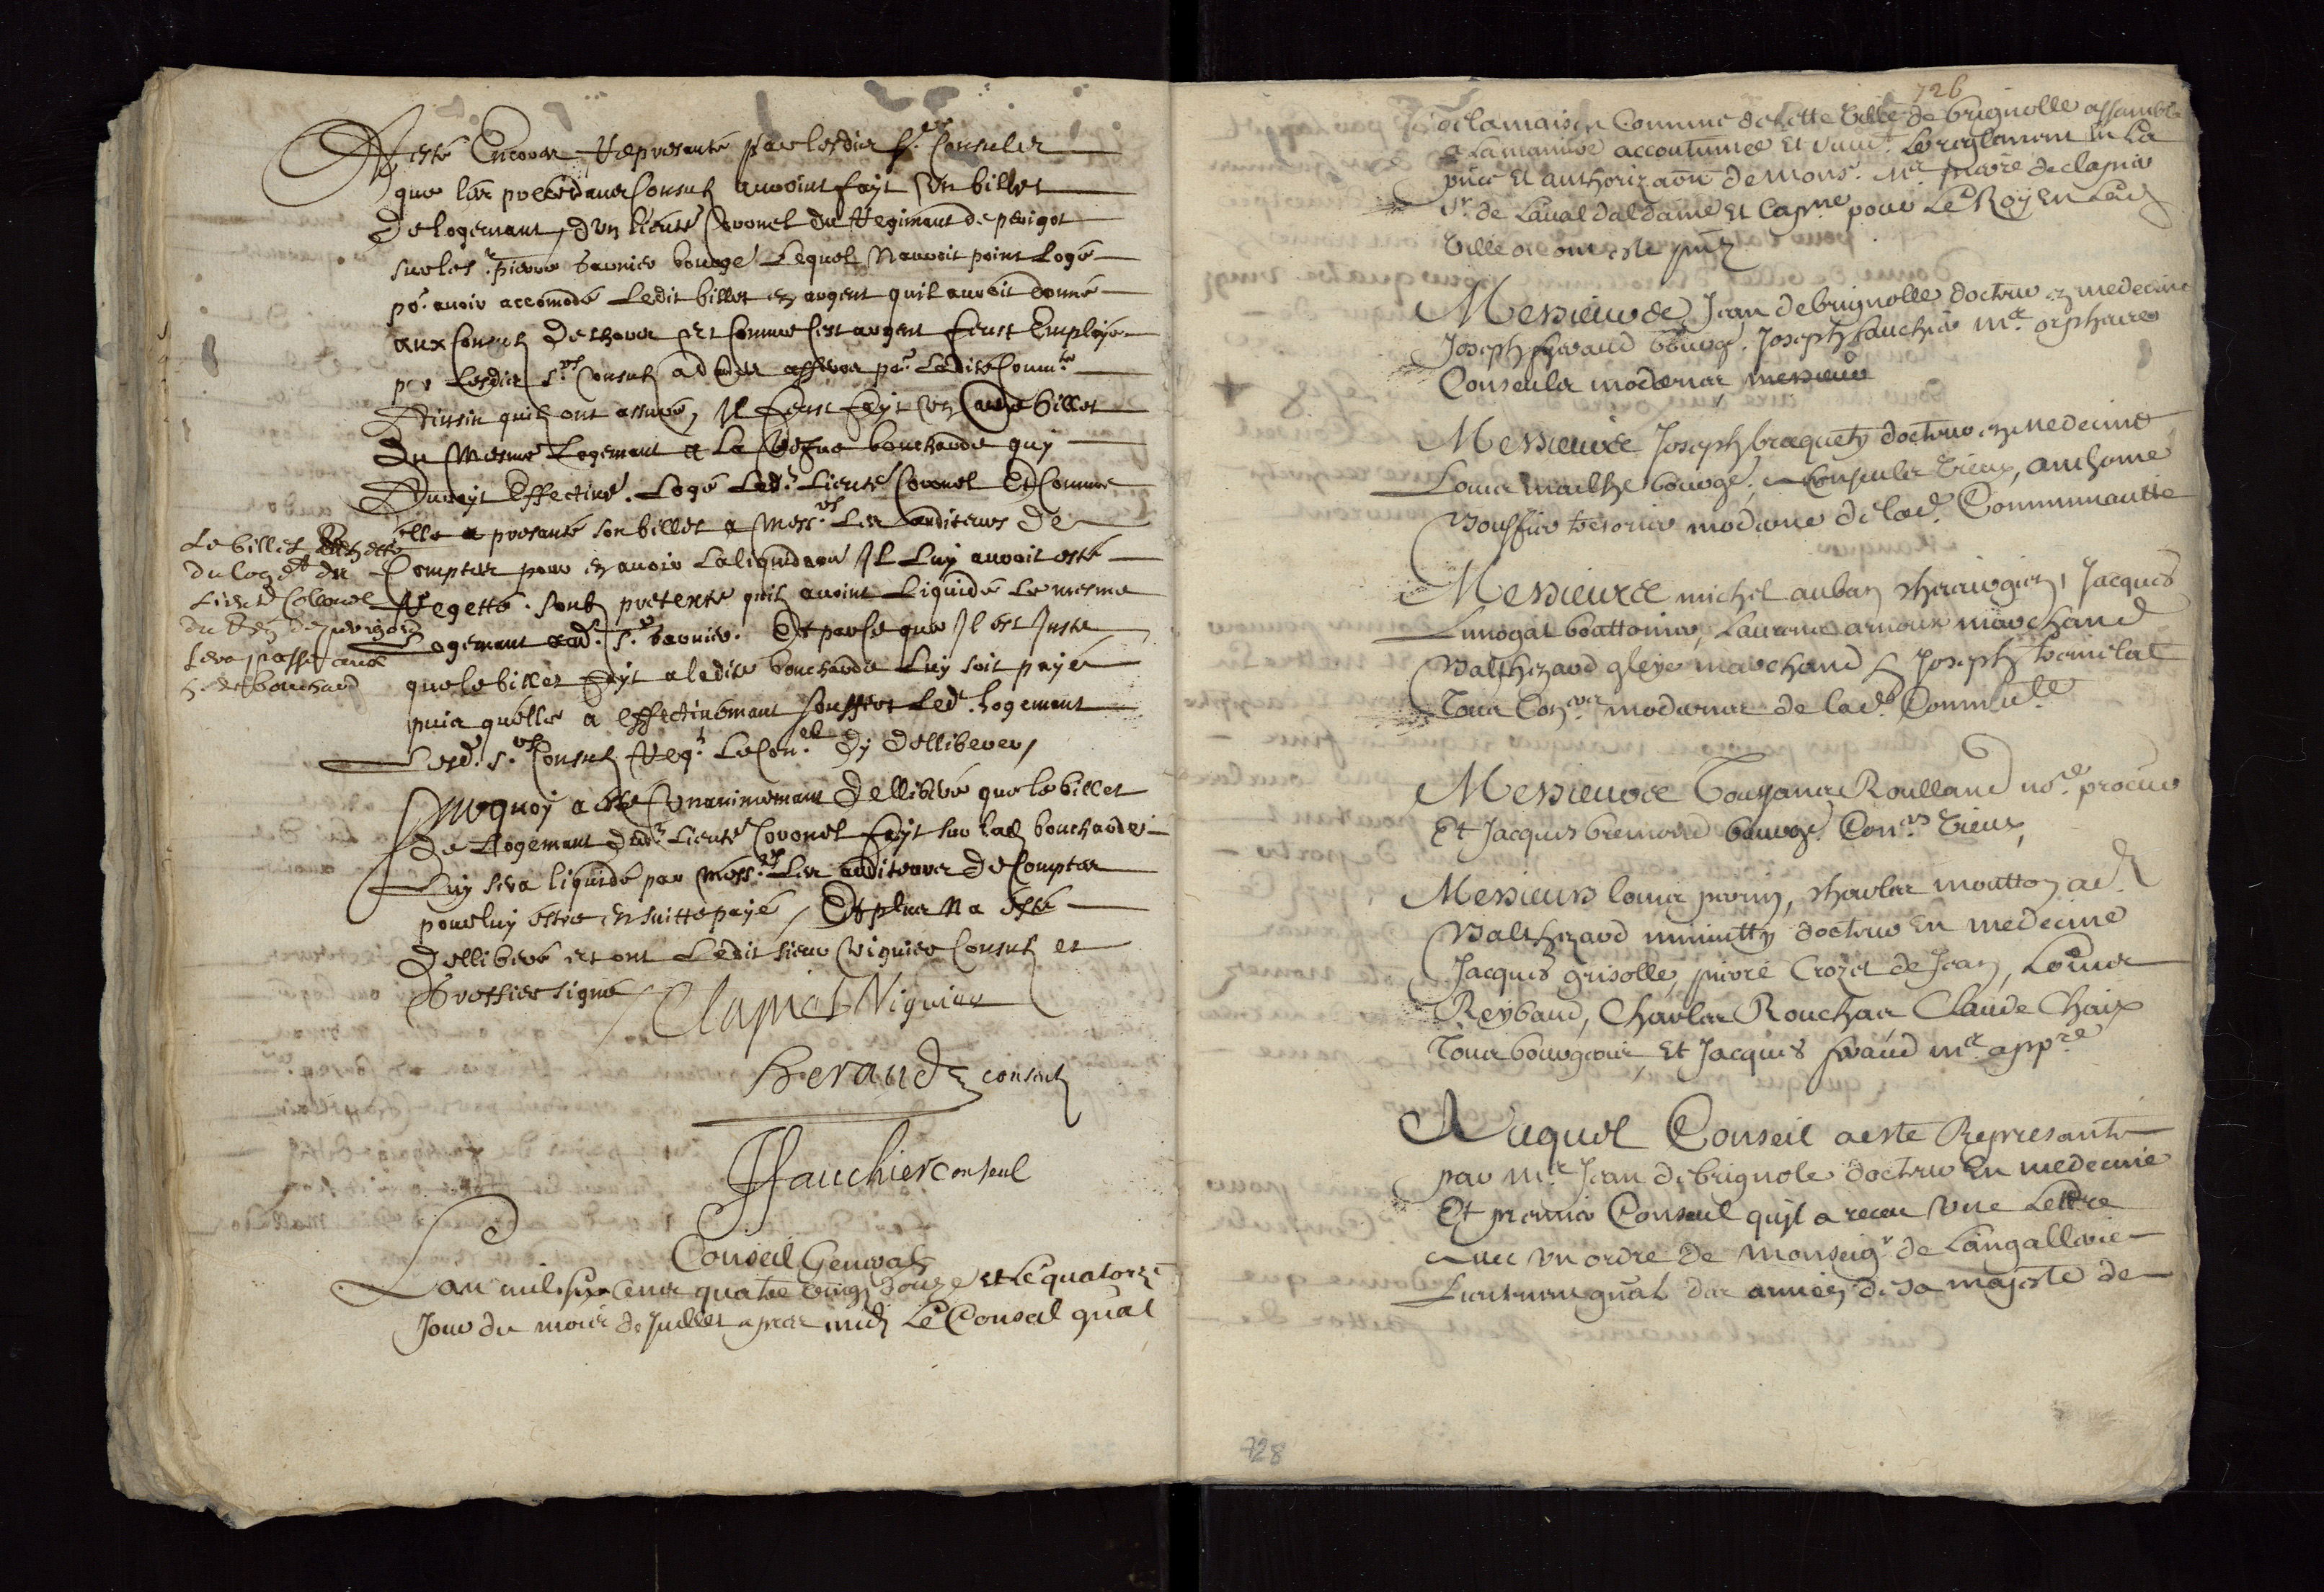 A esté Encores Represanté par lesdits srs Consuls
que les precedans Consulz avoint fayt un billet
De logemant d'un lieuté Coronel du Regimant de perigot
sur le sr pierre barnier bourgé Lequel Navoit point Logé
pr avoir accomodé Ledit billet en argent quil avoit donné
aux Consulz Et comme Cest argent feust Employé
par Lesdits srs Consulz affaires per Ladite Commté
Ainsin quilz ont assuré, Il feust fayt un autre billet
Du Mesme Logemant a La boucharde quy
Auroyt Effective. Logé Ledt Lieuté Coronel Et Comme
elle a presanté son billet a Messrs Les auditeurs De
Comptes pour en avoir La liquidaon Il Luy auroit esté
Regetté soubz pretexte quilz avoint Liquidé Le mesme
Logemant aud. sr barnier. Et parce que Il est Juste
que le billet fayt a ladite boucharde Luy soit payé
puis quelle a effectivemant souffert Led. Logemant
Lesd. srs Consulz Reqt Le Conel Dy Delliberer,
Le billet
du logt du
Lieut Collonel
du Reg de perigord
sera passé
bouchard
Surquoy a esté Unanimemant Dellibéré que le billet
De Logemant dudt Lieuté Coronel fayt sur lad boucharde
Luy sera liquidé par Messrs Les auditeurs De Comptes
pour luy estre en suitte payé, Et plus Na esté
Dellibéré et ont Ledit sieur Viguier Consulz et
Greffier signé
Clapiers Viguier
Beraud consul
JFauchier Conseul
Conseil General
L'an mil six Cens quatre vingt douze et Le quatorze
Jour du mois de Juillet apres midy Le Conseil gnal
726
de la maison Commune de cette Ville de brignolle assamblé
a La maniere accoutumee Et suivt Le reiglement En La
pnce Et authorizaon de Monsr Mr pierre de clapiers
sr de Laval daldame Et Capne pour Le Roy En lad
Ville ou ont esté pntz
Messieurs Jean de brignolle docteur en medecine
Joseph bourgs. Joseph fauchier mre orphevre
Conseulx modernes messieurs
Messieurs Joseph braquety docteur en medecine
Louis mailhe bourgs, Conseulx vieux, anthoine
Bouffier tresorier moderne de lad. Communautté
Messieurs michel auban chirurgien, Jacques
Limogat bouttonier, Laurans arnoux marchand
Balthezard gleye marchand Joseph
Tous Coners modernes de lad. Communte
Messieurs Toussans Roulland nore procur
Et Jacques bremond bourgs. Coners vieux,
Messieurs Louis perrin, charles moutton ad.
Balthezard minutty docteur En medecine
Jacques grisolle, pierre Crozet de Jean, Louis
Reybaud, Charles Rouchas Claude Chaix
Tous bourgeois, Et Jacques mre appre
Auquel Conseil a esté Represanté
par mr Jean de brignole docteur En medecine
Et premier Conseul qu'il a receu Une Lettre
avec un ordre de Monseigr de Langallerie
Lieutenant gnal des armées de sa majesté de
728